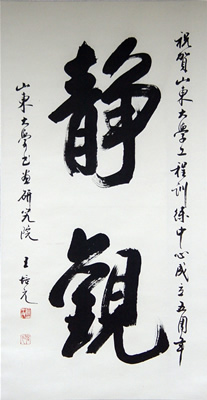 祝賀山東大學工程训练中心成立五周年
静觀
山東大學书画研究院 王培元